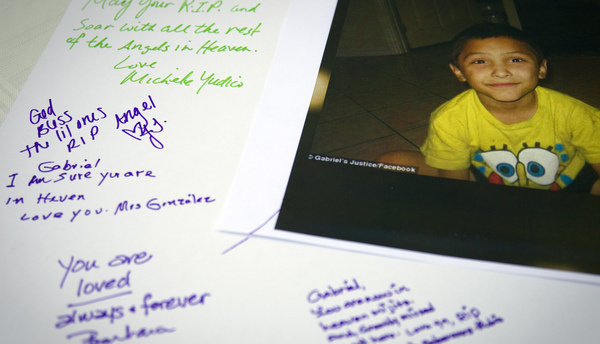 May your R.I.P. and
Soar with all the rest
of the Angels in Heaven.
Love
Michele Yudico
God
Bless
the lil ones
RIP
Angel
Gabriel
I Am Sure you are
in Heaven
Love you. Mrs González
You are
loved
always + forever
Barbara
Gabriel,
You are now in
heaven
missed
RIP
Gabriel's Justice/Facebook